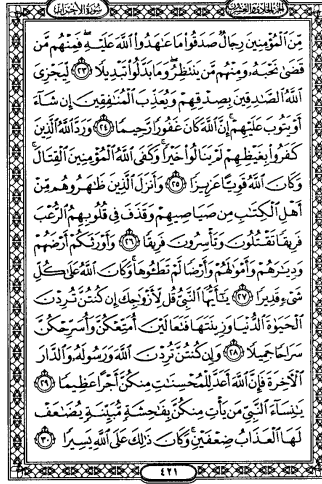 الجزء الحادي والعشرون سورة الأحزاب
مِّنَ الْمُؤْمِنِينَ رِجَالٌ صَدَقُوا مَا عَاهَدُوا اللَّهَ عَلَيْهِ ۖ فَمِنْهُم مَّن
قَضَىٰ نَحْبَهُ وَمِنْهُم مَّن يَنتَظِرُ ۖ وَمَا بَدَّلُوا تَبْدِيلًا ﴿٢٣﴾ لِّيَجْزِيَ
اللَّهُ الصَّادِقِينَ بِصِدْقِهِمْ وَيُعَذِّبَ الْمُنَافِقِينَ إِن شَاءَ
أَوْ يَتُوبَ عَلَيْهِمْ ۚ إِنَّ اللَّهَ كَانَ غَفُورًا رَّحِيمًا ﴿٢٤﴾ وَرَدَّ اللَّهُ الَّذِينَ
كَفَرُوا بِغَيْظِهِمْ لَمْ يَنَالُوا خَيْرًا ۚ وَكَفَى اللَّهُ الْمُؤْمِنِينَ الْقِتَالَ ۚ
وَكَانَ اللَّهُ قَوِيًّا عَزِيزًا ﴿٢٥﴾ وَأَنزَلَ الَّذِينَ ظَاهَرُوهُم مِّنْ
أَهْلِ الْكِتَابِ مِن صَيَاصِيهِمْ وَقَذَفَ فِي قُلُوبِهِمُ الرُّعْبَ
فَرِيقًا تَقْتُلُونَ وَتَأْسِرُونَ فَرِيقًا ﴿٢٦﴾ وَأَوْرَثَكُمْ أَرْضَهُمْ
وَدِيَارَهُمْ وَأَمْوَالَهُمْ وَأَرْضًا لَّمْ تَطَئُوهَا ۚ وَكَانَ اللَّهُ عَلَىٰ كُلِّ
شَيْءٍ قَدِيرًا ﴿٢٧﴾ يَا أَيُّهَا النَّبِيُّ قُل لِّأَزْوَاجِكَ إِن كُنتُنَّ تُرِدْنَ
الْحَيَاةَ الدُّنْيَا وَزِينَتَهَا فَتَعَالَيْنَ أُمَتِّعْكُنَّ وَأُسَرِّحْكُنَّ
سَرَاحًا جَمِيلًا ﴿٢٨﴾ وَإِن كُنتُنَّ تُرِدْنَ اللَّهَ وَرَسُولَهُ وَالدَّارَ
الْآخِرَةَ فَإِنَّ اللَّهَ أَعَدَّ لِلْمُحْسِنَاتِ مِنكُنَّ أَجْرًا عَظِيمًا ﴿٢٩﴾
يَا نِسَاءَ النَّبِيِّ مَن يَأْتِ مِنكُنَّ بِفَاحِشَةٍ مُّبَيِّنَةٍ يُضَاعَفْ
لَهَا الْعَذَابُ ضِعْفَيْنِ ۚ وَكَانَ ذَٰلِكَ عَلَى اللَّهِ يَسِيرًا ﴿٣٠﴾
٤٢١